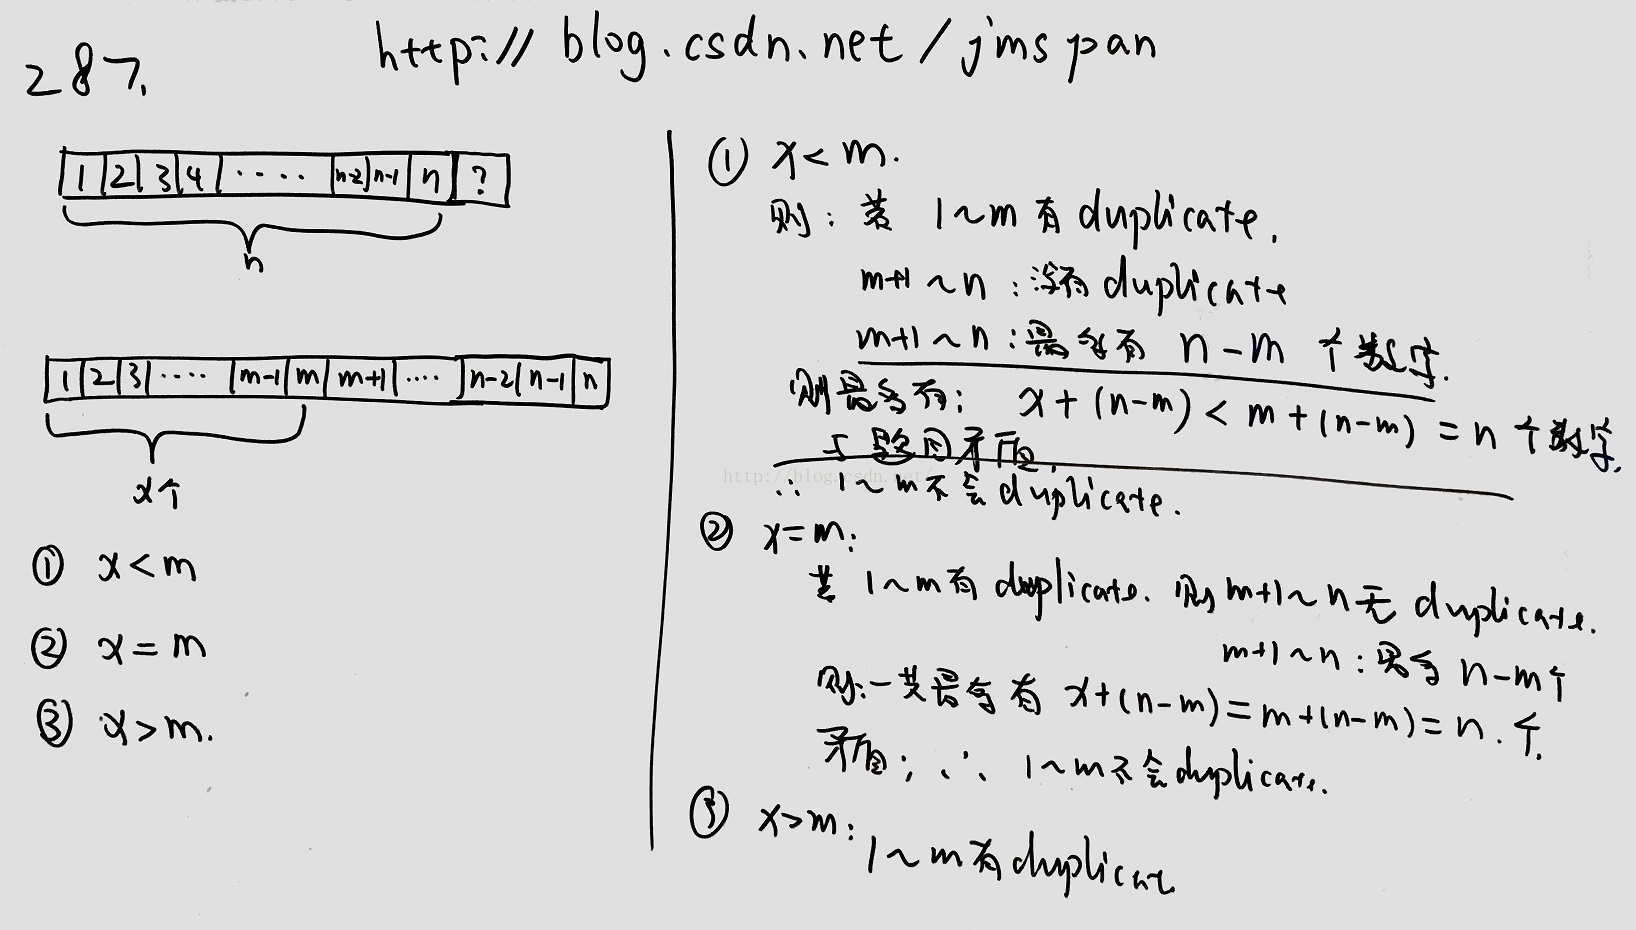 http://blog.csdn.net/jmspan
287.
1 2 3 4 ···· n-2 n-1 n ?
n
1 2 3 ···· m-1 m m+1 ···· n-2 n-1 n
x个
① x<m
② x=m
③ x>m.
① x<m.
则: 若 1~m 有 duplicate.
m+1~n: 没有 duplicate
m+1~n: 最多有 n-m 个数字.
则最多有: x+(n-m)<m+(n-m)=n个数字.
与题目矛盾.
http://blog.csdn.net/
∴ 1~m不会duplicate.
② x=m:
若 1~m有 duplicate. 则 m+1~n无 duplicate.
m+1~n: 最多 n-m个
则: 一共最多有 x+(n-m)=m+(n-m)=n.个.
矛盾; ∴ 1~m不会duplicate.
③ x>m:
1~m有duplicate